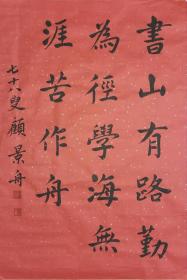 書山有路勤
為徑學海無
涯苦作舟
七十八叟顧景舟